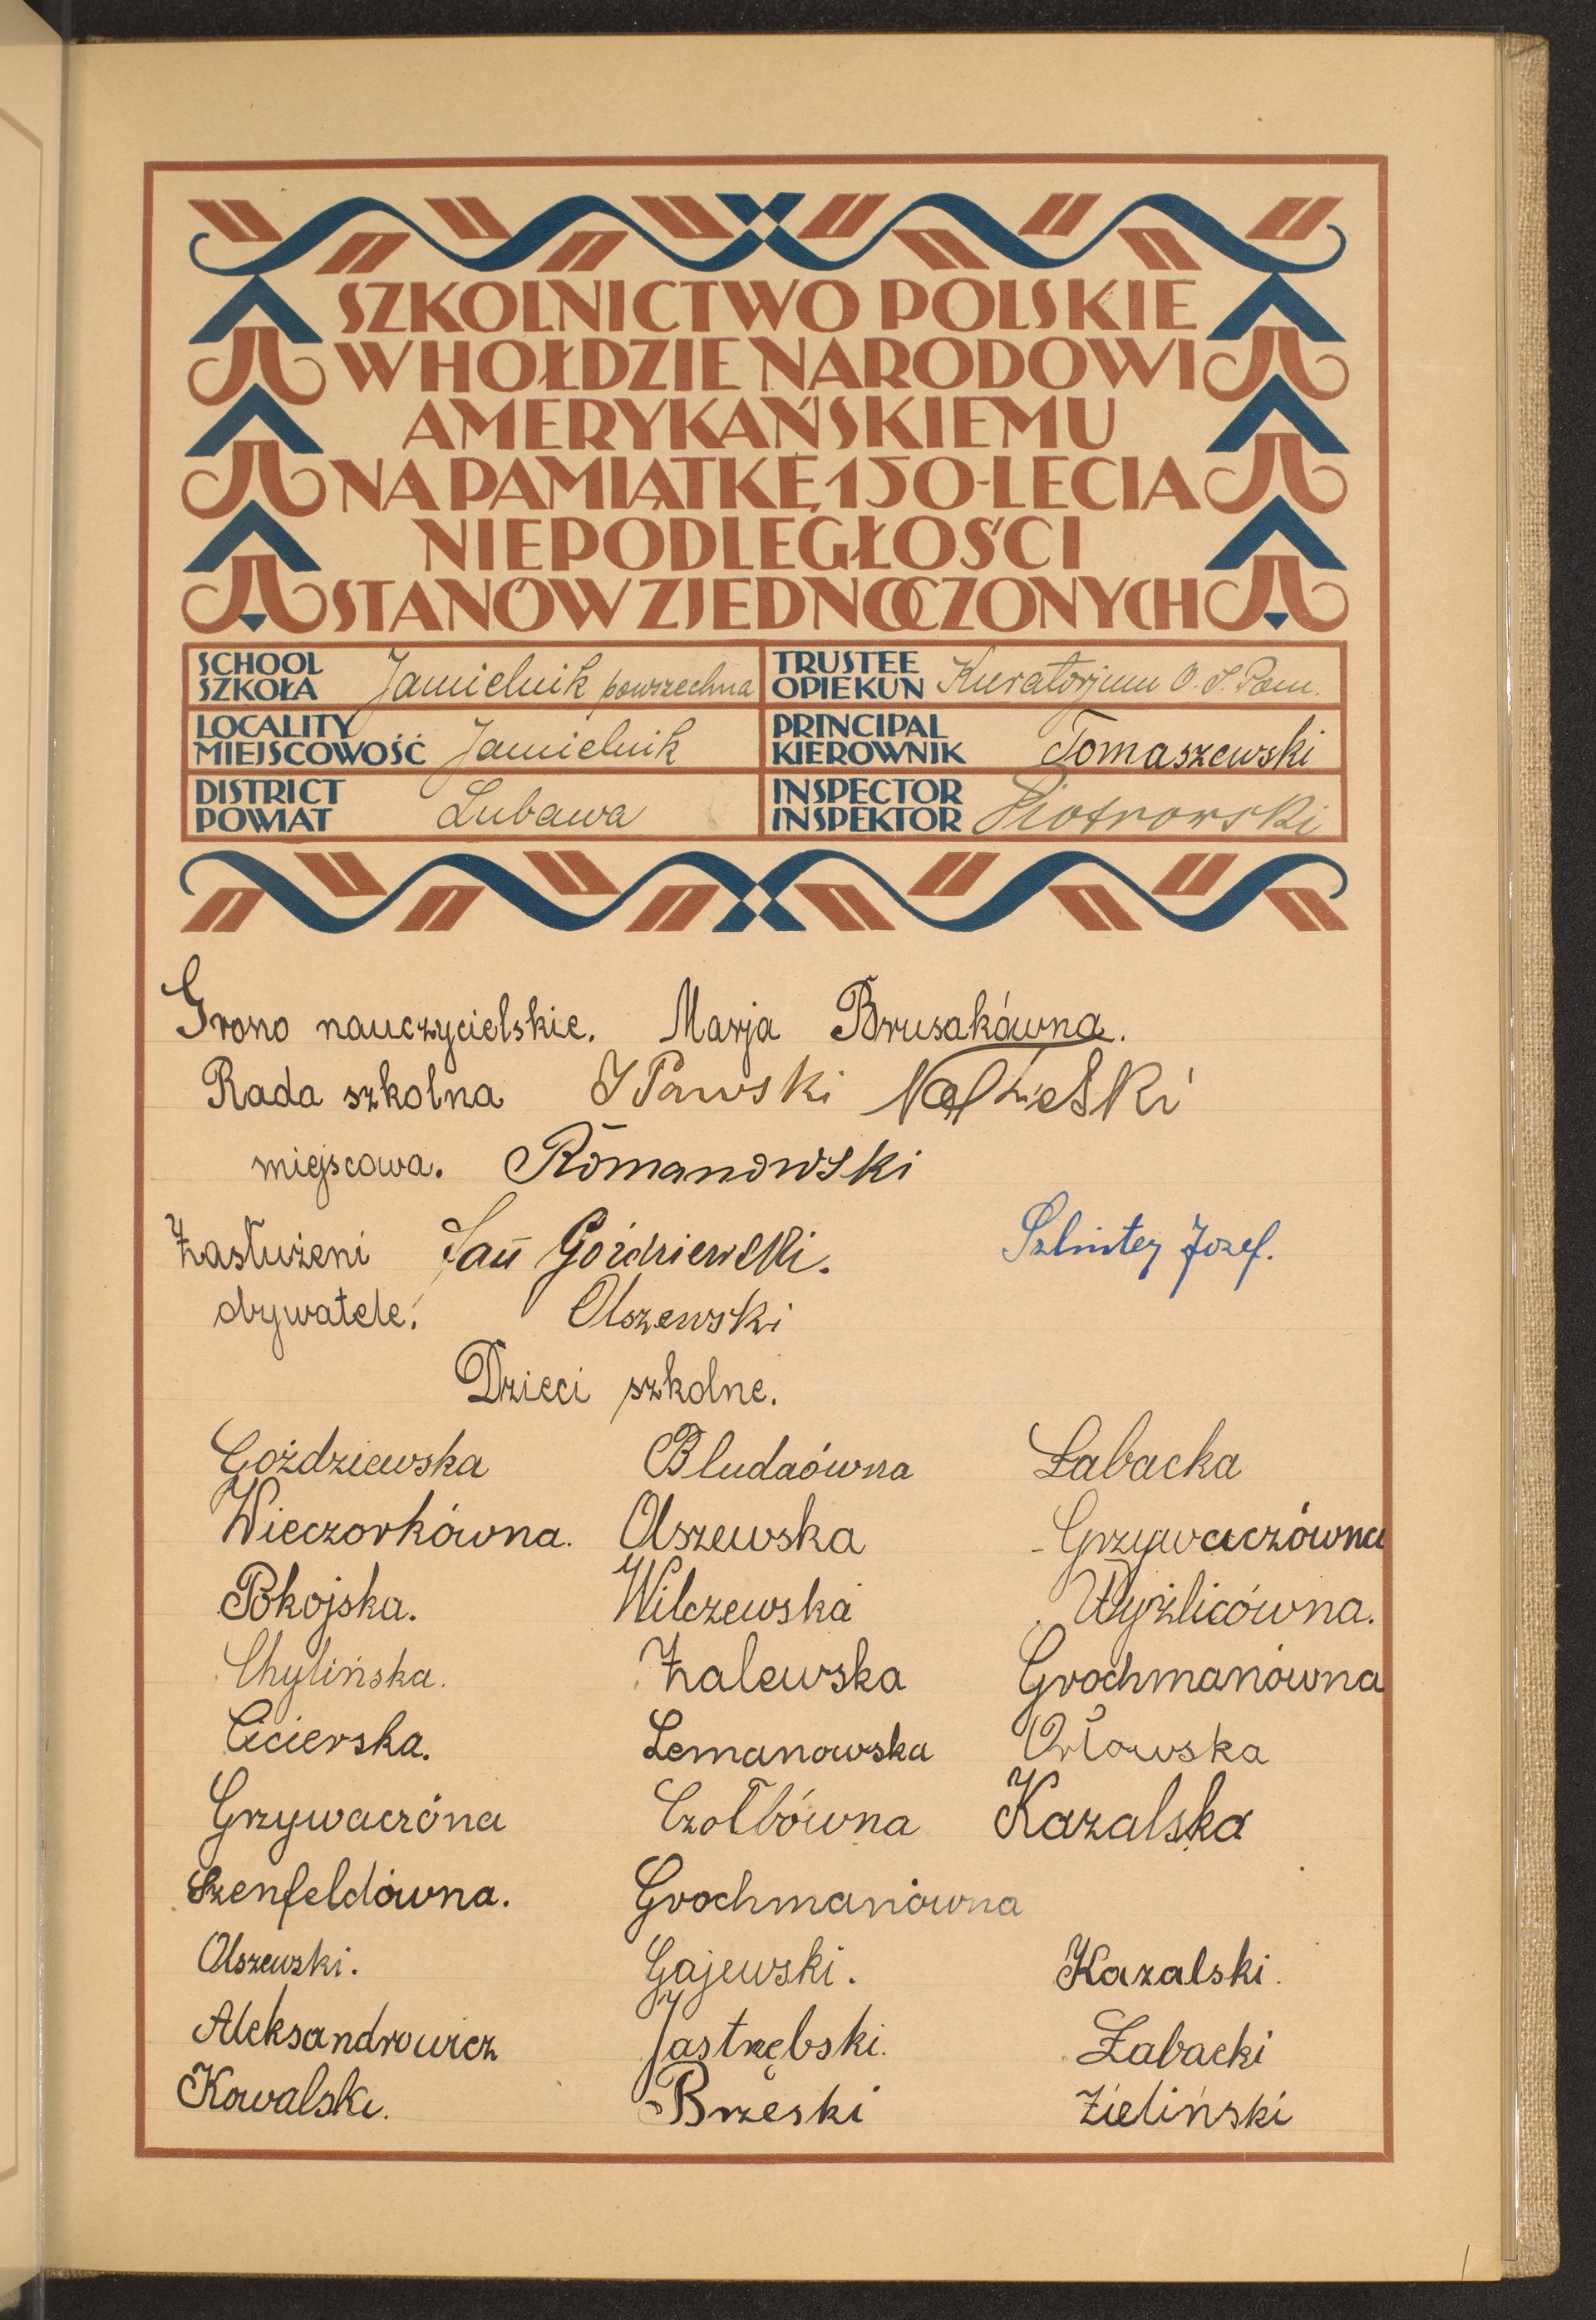 SZKOLNICTWO POLSKIE
W HOŁDZIE NARODOWI
AMERYKAŃSKIEMU
NA PAMIĄTKĘ 150-LECIA
NIEPODLEGŁOŚCI
STANÓW ZJEDNOCZONYCH
SCHOOL
SZKOŁA Jamielnik powszechna
TRUSTEE
OPIEKUN Kuratorjum O. S. Pom.
LOCALITY
MIEJSCOWOŚĆ Jamielnik
PRINCIPAL
KIEROWNIK Tomaszewski
DISTRICT
POWIAT Lubawa
INSPECTOR
INSPEKTOR Piotrowski
Grono nauczycielskie. Marja Brusakówna.
Rada szkolna
miejscowa. Romanowski
Zasłużeni Jan Goździewski. Józef.
obywatele: Olszewski
Dzieci szkolne.
Goździewska Bludaówna Łabacka
Wieczorkówna. Olszewska Grzywaczówna
Pokojska. Wilczewska Wyżlicówna.
Chylińska. Zalewska Grochmanówna
Cicierska. Lemanowska Orłowska
Grzywaczóna Czołbówna Kazalska
Szenfeldówna. Grochmanówna
Olszewski. Gajewski. Kazalski.
Aleksandrowicz Jastrzębski. Łabacki
Kowalski. Brzeski Zieliński